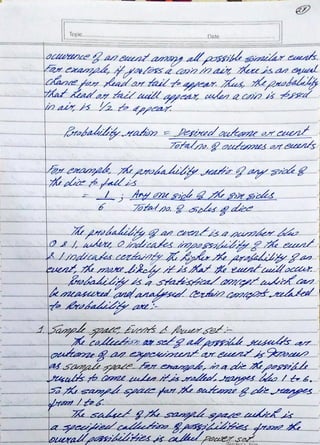 Topic
Date
occurrence of an event among all possible similar events.
For example, if you toss a coin in air, there is an equal
chance for head or tail to appear. Thus, the probability
that head or tail will appear, when a coin is tossed
in air, is 1/2 to appear.
Probability ration = Desired outcome or event
Total no. of outcomes or events
For example, the probability ratio of any side of
the dice to fall is
= 1 ; Any one side of the six sides
6 Total no. of sides of dice
The probability of an event is a number b/w
0 & 1, where, 0 indicates impossibility of the event
& 1 indicates certainty. The higher the probability of an
event, the more likely it is that the event will occur.
Probability is a statistical concept which can
be measured and analysed. Certain concepts related
to probability are:-
1. Sample space, Events & Power set :-
The collection or set of all possible results or
outcome of an experiment or event is known
as sample space. For example, in a die the possible
results to come when it is rolled, ranges b/w 1 to 6.
So the sample space for the outcome of die ranges
from 1 to 6.
The subset of the sample space which is
a specified collection of possibilities from the
overall possibilities is called power set.